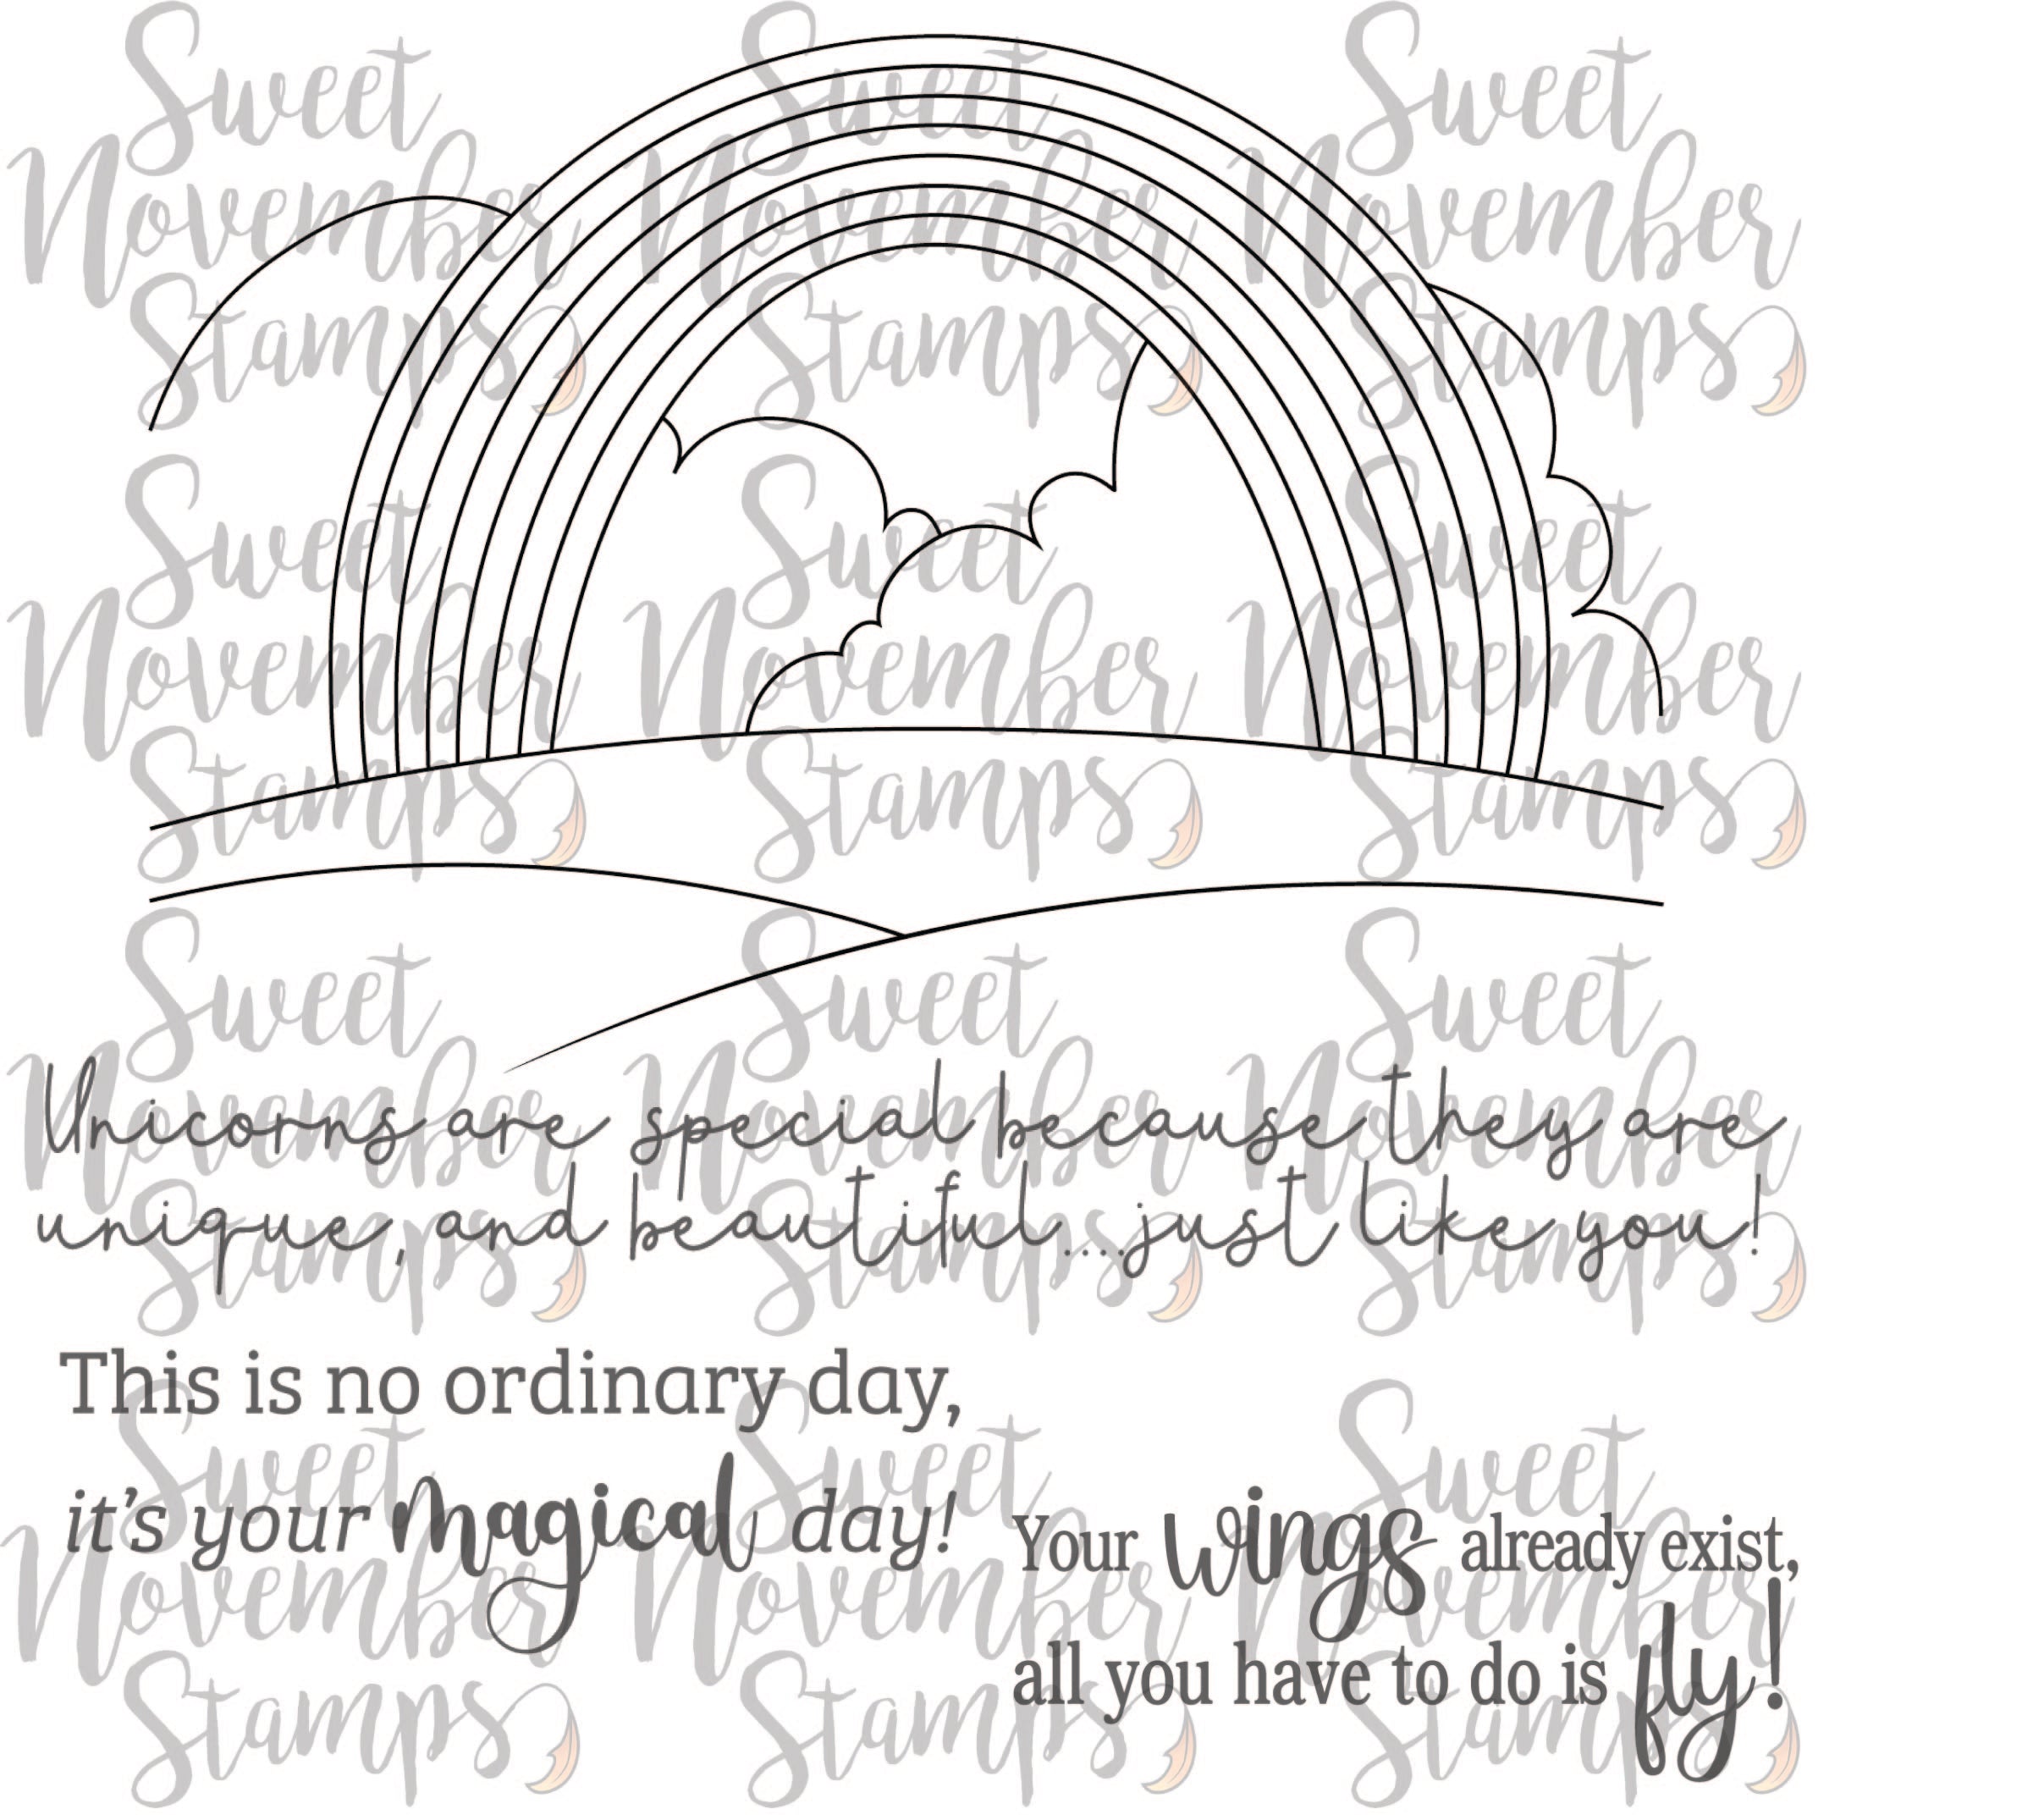 Sweet Sweet Sweet
November November November
Stamps Stamps Stamps
Sweet Sweet Sweet
November November November
Stamps Stamps Stamps
Sweet Sweet Sweet
November November November
Stamps Stamps Stamps
Unicorns are special because they are
unique, and beautiful....just like you!
This is no ordinary day,
it's your magical day!
Your wings already exist,
all you have to do is fly!
Sweet Sweet Sweet
November November November
Stamps Stamps Stamps